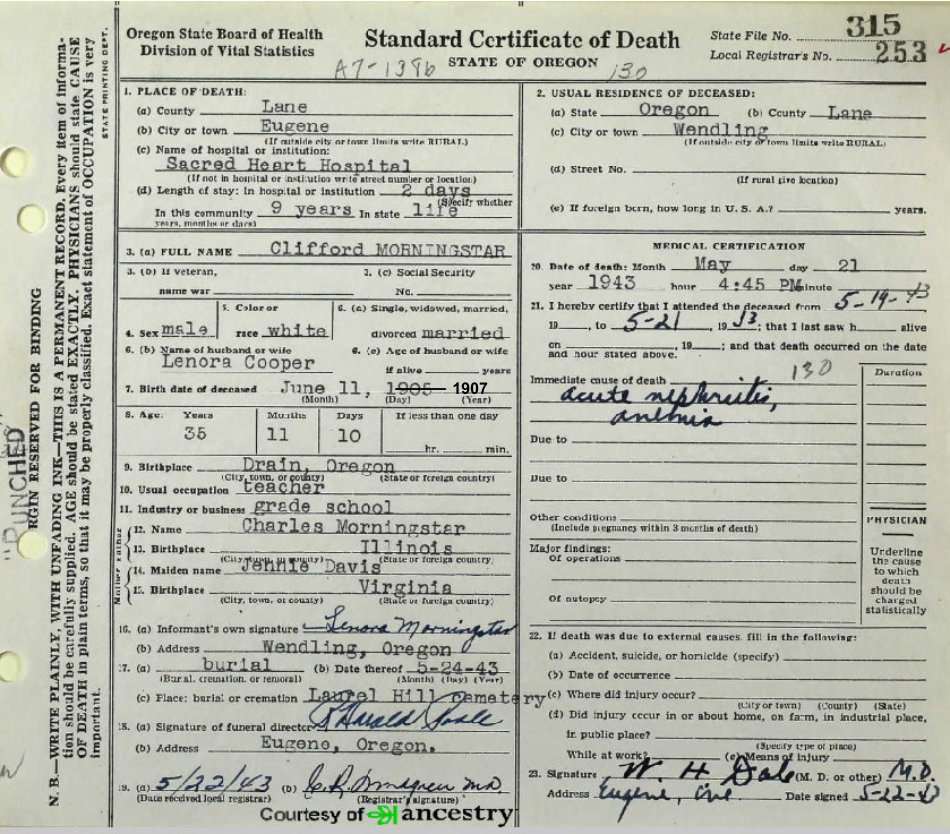 Oregon State Board of Health
Division of Vital Statistics
Standard Certificate of Death
STATE OF OREGON
A7-1386
130
State File No. 315
Local Registrar's No. 253
1. PLACE OF DEATH:
(a) County Lane
(b) City or town Eugene
(If outside city or town limits write RURAL)
(c) Name of hospital or institution:
Sacred Heart Hospital
(If not in hospital or institution write street number or location)
(d) Length of stay: In hospital or institution 2 days
(Specify whether
In this community 9 years In state life
years, months or days)
2. USUAL RESIDENCE OF DECEASED:
(a) State Oregon (b) County Lane
(c) City or town Wendling
(If outside city or town limits write RURAL)
(d) Street No.
(If rural give location)
(e) If foreign born, how long in U. S. A.? years.
3. (a) FULL NAME Clifford MORNINGSTAR
3. (b) If veteran,
name war
3. (c) Social Security
No.
4. Sex male
5. Color or
race white
6. (a) Single, widowed, married,
divorced married
6. (b) Name of husband or wife
Lenora Cooper
6. (c) Age of husband or wife
if alive years
7. Birth date of deceased June 11, 1905 1907
(Month) (Day) (Year)
8. Age: Years Months Days If less than one day
35 11 10
hr. min.
9. Birthplace Drain, Oregon
(City, town, or county) (State or foreign country)
10. Usual occupation teacher
11. Industry or business grade school
Father
12. Name Charles Morningstar
13. Birthplace Illinois
(City, town, or county) (State or foreign country)
Mother
14. Maiden name Jennie Davis
15. Birthplace Virginia
(City, town, or county) (State or foreign country)
16. (a) Informant's own signature Lenora Morningstar
(b) Address Wendling, Oregon
17. (a) burial (b) Date thereof 5-24-43
(Burial, cremation, or removal) (Month) (Day) (Year)
(c) Place: burial or cremation Laurel Hill Cemetery
18. (a) Signature of funeral director Harold
(b) Address Eugene, Oregon.
19. (a) 5/22/43 (b) M.D.
(Date received local registrar) (Registrar's signature)
MEDICAL CERTIFICATION
20. Date of death: Month May day 21
year 1943 hour 4:45 PM minute
21. I hereby certify that I attended the deceased from 5-19-43
19, to 5-21, 1943; that I last saw h alive
on , 19 ; and that death occurred on the date
and hour stated above.
130
Duration
Immediate cause of death
acute nephritis,
anemia
Due to
Due to
Other conditions
(Include pregnancy within 3 months of death)
Major findings:
Of operations
Of autopsy
PHYSICIAN
Underline
the cause
to which
death
should be
charged
statistically
22. If death was due to external causes, fill in the following:
(a) Accident, suicide, or homicide (specify)
(b) Date of occurrence
(c) Where did injury occur?
(City or town) (County) (State)
(d) Did injury occur in or about home, on farm, in industrial place,
in public place?
(Specify type of place)
While at work? (e) Means of injury
23. Signature W. H. Dale (M. D. or other) M.D.
Address Eugene, Ore Date signed 5-22-43
"PUNCHED
RGIN RESERVED FOR BINDING
N. B.—WRITE PLAINLY, WITH UNFADING INK—THIS IS A PERMANENT RECORD. Every item of informa-
tion should be carefully supplied. AGE should be stated EXACTLY. PHYSICIANS should state CAUSE
OF DEATH in plain terms, so that it may be properly classified. Exact statement of OCCUPATION is very
important.
STATE PRINTING DEPT.
Courtesy of ancestry